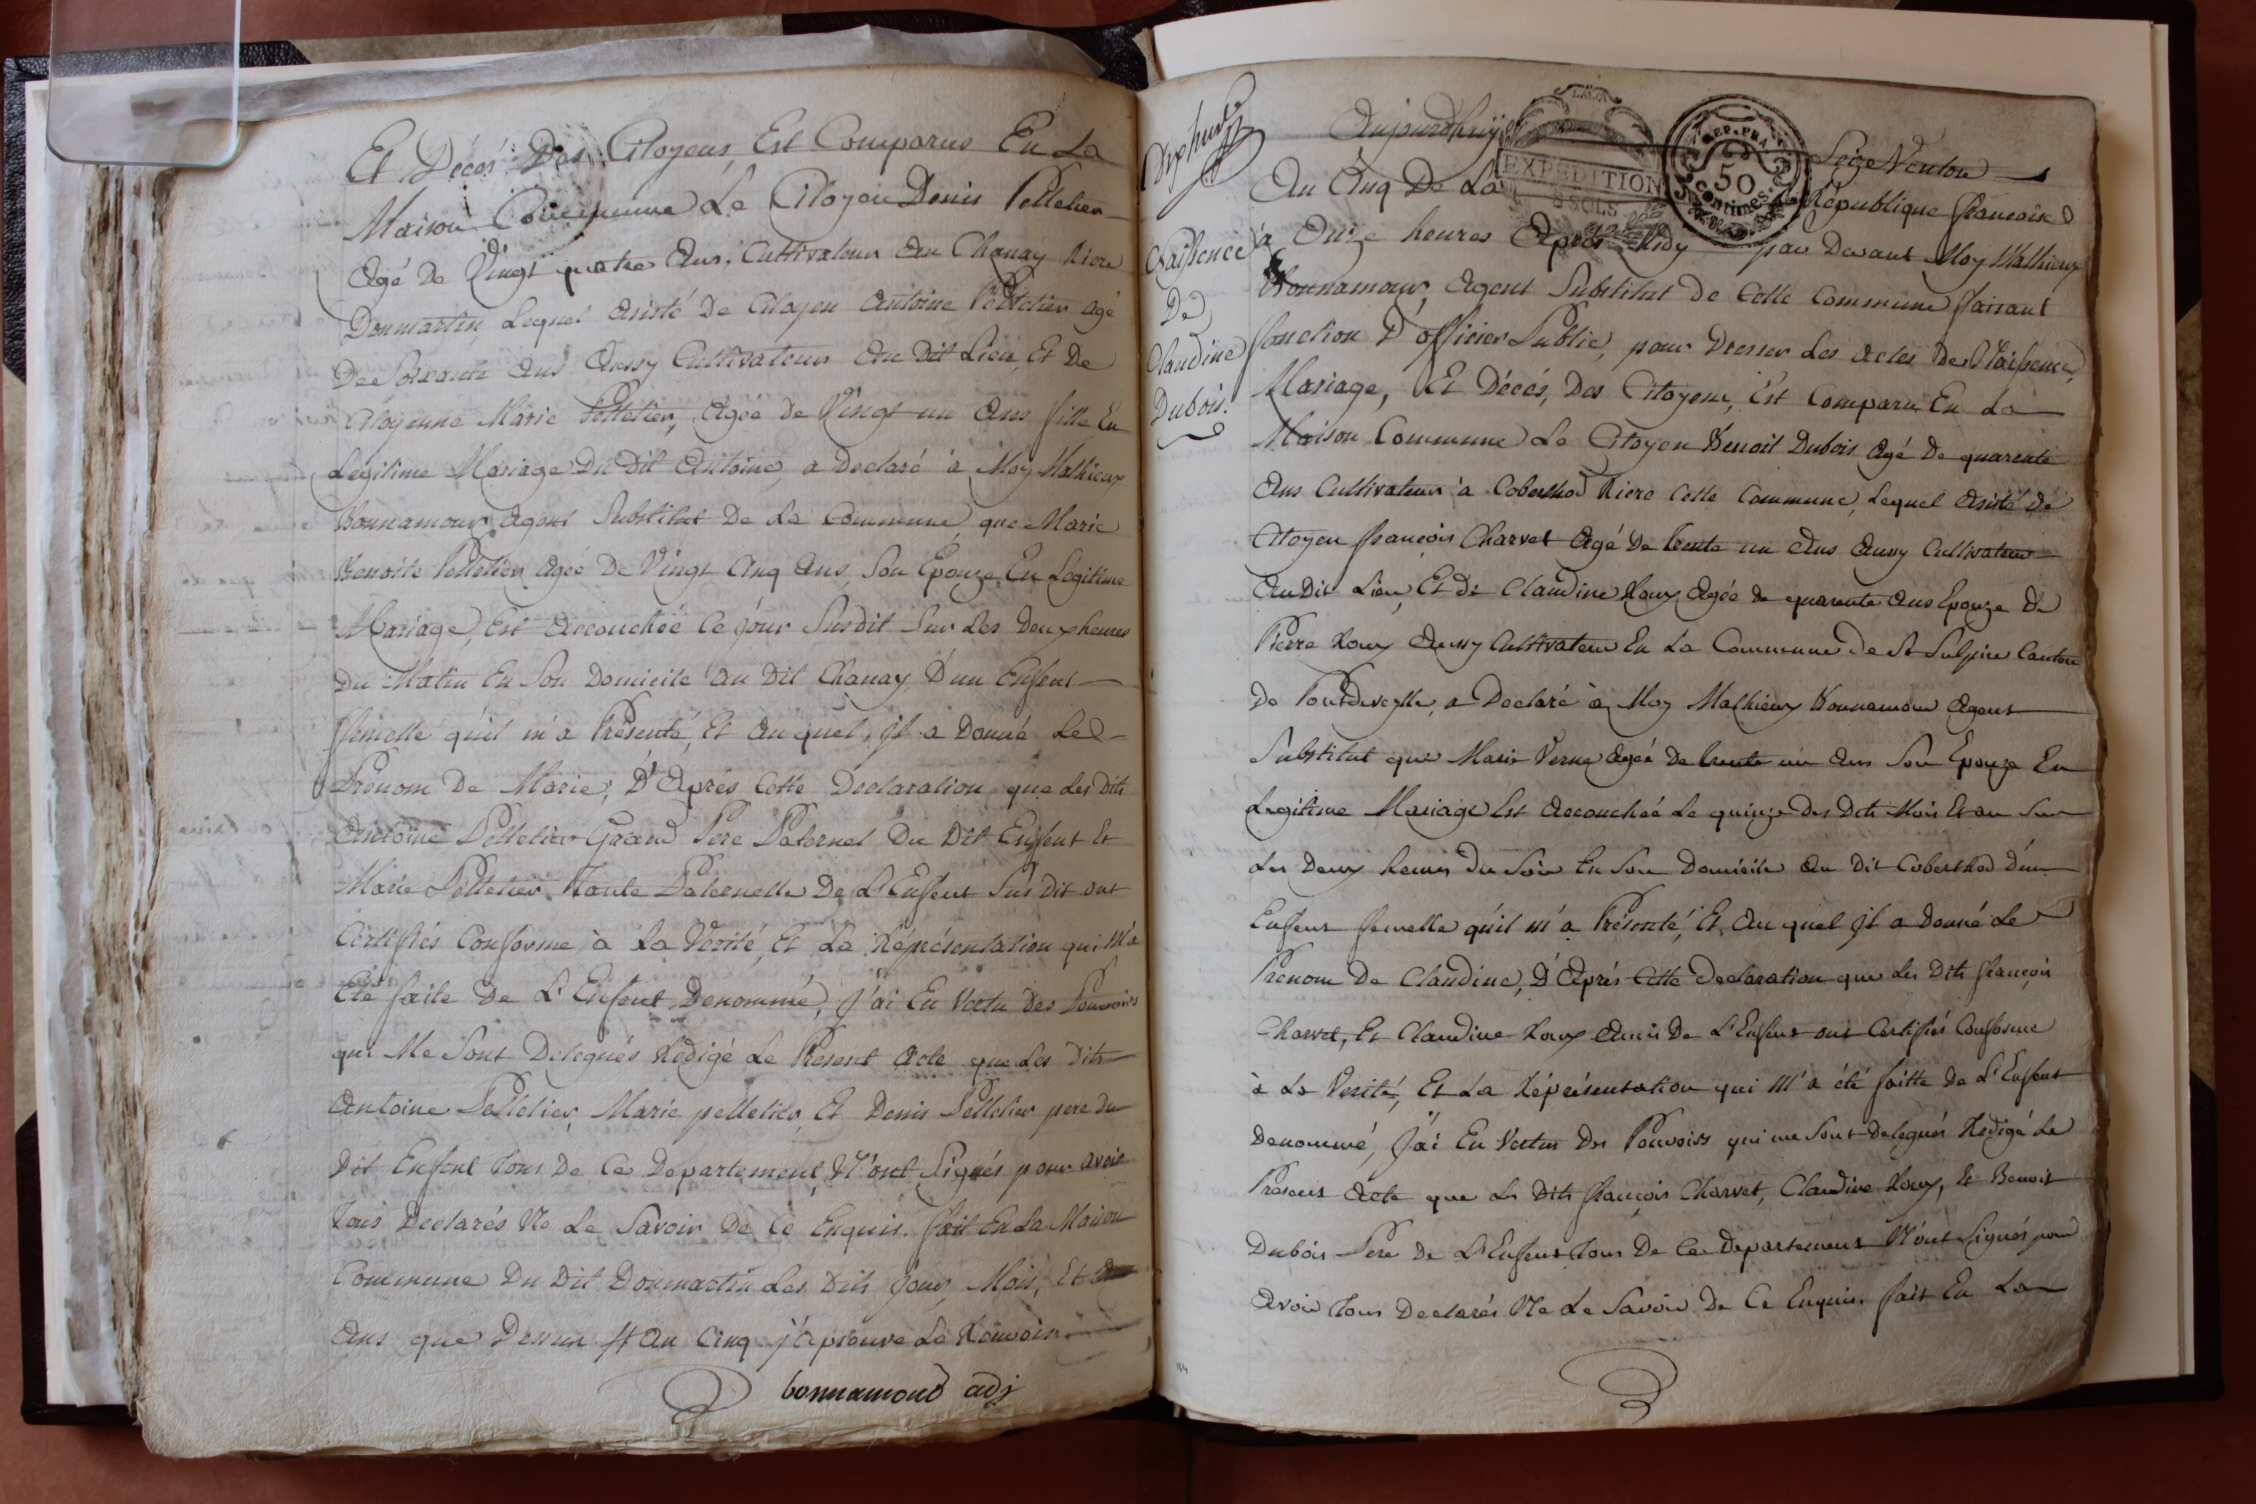 Et Décés Des Citoyens Est Comparus En La
Maison Commune Le Citoyen Denis Pelletier
Agé de Vingt quatre Ans, Cultivateur Au Chanay Riere
Donmartin, Lequel Asisté De Citoyen Antoine Pelletier Agé
De Soixante Ans Aussy Cultivateur Au Dit Lieu, Et De
Citoyenne Marie Pelletier, Agée de Vingt un Ans fille En
Legitime Mariage Du Dit Antoine, a Declaré à Moy Mathieux
Bonnamour Agent Substitut De La Commune que Marie
Benoite Pelletier Agée De Vingt Cinq Ans, Son Epouze En Legitime
Mariage, Est Accouchée Ce jour Susdit Sur Les Deux heures
Du Matin En Son Domicile Au Dit Chanay D'un Enfent
femelle qu'il m'a Présenté, Et Au quel, Jl a Donné Le
Prenom De Marie, D'Aprés Cette Declaration que Les Dits
Antoine Pelletier Grand Pere Paternel Du Dit Enfent Et
Marie Pelletier Tante Paternelle De L'Enfent Sus Dit ont
Certifiés Conforme à La Verité, Et La Réprésentation qui M'a
été faite De L'Enfent Denommé, J'ai En Vertu Des Pouvoirs
qui Me Sont Delegués Redigé Le Present Acte que Les Dits
Antoine Pelletier, Marie pelletier, Et Denis Pelletier pere du
Dit Enfent tous De Ce Departement, N'ont Signés pour avoir
tous Declarés Ne Le Savoir De Ce Enquis. fait En La Maison
Commune Du Dit Donmartin Les Dits Jour, Mois, Et
Ans que Dessus # An Cinq j'aprouve Le Renvoir
bonnamour adj
Aujourdhuy Seize Ventose
EXPEDITION
5 SOLS
REP. FRA.
50
centimes
An Cinq De La République francaise
à Onze heures Aprés Midy par Devant Moy Mathieux
Naissence
De
Claudine
Dubois.
Bonnamour, Agent Substitut de Cette Commune faisant
fonction D'officier Public, pour Dresser Les Actes De Naissence,
Mariage, Et Décés, Des Citoyens, Est Comparu En La
Maison Commune Le Citoyen Benoit Dubois Agé De quarente
Ans Cultivateur à Coberthod Riere Cette Commune, Lequel Asisté De
Citoyen françois Charvet Agé De trente un Ans Aussy Cultivateur
Au Dit Lieu, Et De Claudine Roux Agée de quarente Ans Epouze De
Pierre Roux Aussy Cultivateur En La Commune De St Sulpice Canton
De Pontdeveylle, a Declaré à Moy Mathieux Bonnamour Agent
Substitut que Marie Verne Agée De trente un Ans Son Epouze En
Legitime Mariage Est Accouchée Le quinze Des Dits Mois Et an Sur
Les Deux heures Du Soir En Son Domicile Au Dit Coberthod D'un
Enfent femelle qu'il m'a Présenté, Et Au quel Jl a Donné Le
Prenom De Claudine, D'Aprés Cette Declaration que Les Dits françois
Charvet, Et Claudine Roux Amis De L'Enfent ont Certifiés Conforme
à La Verité, Et La Réprésentation qui M'a été faitte De L'Enfent
Denommé, J'ai En Vertus Des Pouvoirs qui me Sont Delegués Redigé Le
Présent Acte que Les Dits françois Charvet, Claudine Roux, Et Benoit
Dubois Pere De L'Enfent tous De Ce Departement N'ont Signés pour
Avoir tous Declarés Ne Le Savoir De Ce Enquis. fait En La